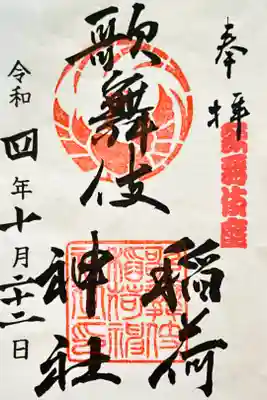 奉拝
歌舞伎座
歌舞伎
稲荷
神社
令和四年十月二十二日